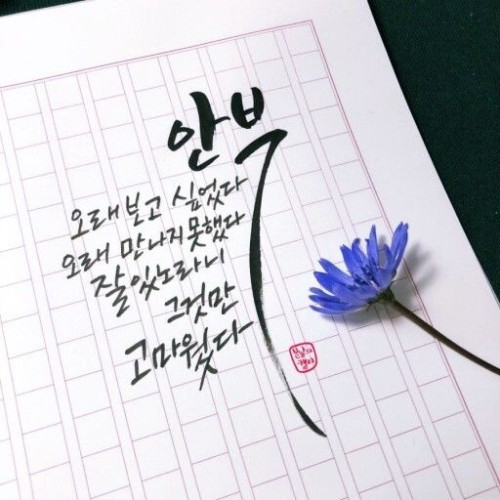 안부
오래 보고 싶었다
오래 만나지 못했다
잘 있노라니
그것만
고마웠다